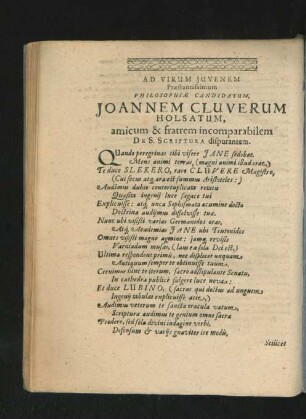 AD VIRUM JUVENEM
Præstantissimum
PHILOSOPHIÆ CANDIDATUM,
JOANNEM CLUVERUM
HOLSATUM,
amicum & fratrem incomparabilem
DE S. SCRIPTURA disputantem.
QUando peregrinas tibi visere JANE sedebat
Mens animi terras, (magni animi illud erat,)
Te duce SLEKERO, raro CLUVERE Magistro,
(Cui secus atq; ara est summus Aristoteles:)
Audimus dubio contortuplicata
Quæsita ingenij luce sagace tui
Explicuisse: atq; unca Sophismata acumine docto
Doctrina audimus dissolvisse tuæ.
Nunc ubi visisti varias Germanidos oras,
Atq; Academias JANE ubi Teutonidos
Omnes visisti magno agmine: jamq; revisis
Varniadum musas, (laus ea sola Dei est,)
Ultima respondent primis, nec displicet unquam
Antiquum semper te obtinuisse tuum.
Cernimus hinc te iterum, sacro adstipulante Senatu,
In cathedra publica fulgere luce nova:
Et duce LUBINO, (sacras qui doctus ad unguem
Ingenij tabulas explicuisse acie,)
Audimus veterum te sancta oracula vatum,
Scriptura audimus te genium omne sacra
Prodere, sed sola divini indagine verbi,
Defensum & varijs gnaviter ire modis,
Scilicet